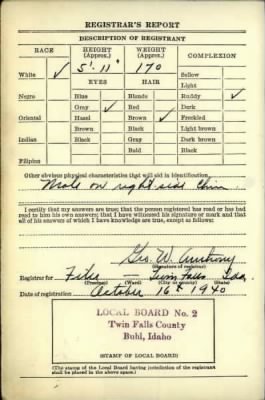 REGISTRAR'S REPORT
DESCRIPTION OF REGISTRANT
RACE
HEIGHT (Approx.)
WEIGHT (Approx.)
COMPLEXION
White ✓
5' 11"
170
Sallow
EYES
HAIR
Light
Negro
Blue
Blonde
Ruddy ✓
Gray ✓
Red
Dark
Oriental
Hazel
Brown ✓
Freckled
Brown
Black
Light brown
Indian
Black
Gray
Dark brown
Bald
Black
Filipino
Other obvious physical characteristics that will aid in identification
Mole on right side Chin
I certify that my answers are true; that the person registered has read or has had
read to him his own answers; that I have witnessed his signature or mark and that
all of his answers of which I have knowledge are true, except as follows:
Geo. W. Anthony
(Signature of registrar)
Registrar for Filer — Twin Falls Ida,
(Precinct) (Ward) (City or county) (State)
Date of registration October 16th 1940
LOCAL BOARD No. 2
Twin Falls County
Buhl, Idaho
(STAMP OF LOCAL BOARD)
(The stamp of the Local Board having jurisdiction of the registrant
shall be placed in the above space.)